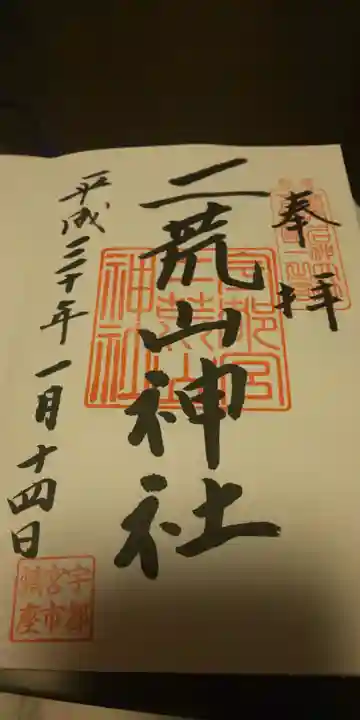 奉拝
二荒山神社
平成三十年一月十四日
宇都宮
二荒山
神社
宇都
宮市
鎮座